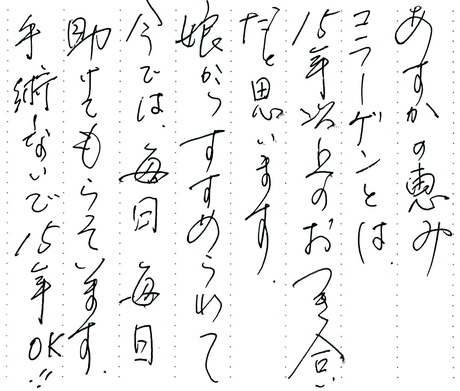 あすかの恵み
コラーゲンとは
15年以上のおつき合い
だと思います.
娘からすすめられて
今では、毎日毎日
助けてもらっています.
手術ないで15年OK!!